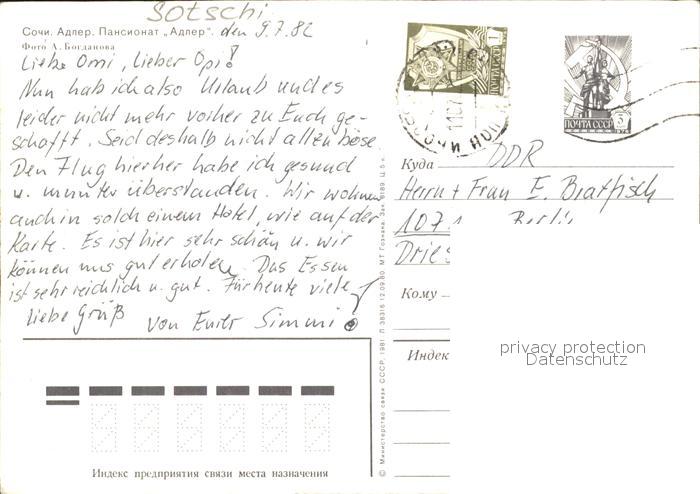 Sotschi
Сочи. Адлер. Пансионат „Адлер". den 9.7.82
Фото А. Богданова
Liebe Omi, lieber Opi!
Nun hab ich also Urlaub und es
leider nicht mehr vorher zu Euch ge-
schafft. Seid deshalb nicht allzu böse.
Den Flug hierher habe ich gesund
u. munter überstanden. Wir wohnen
auch in solch einem Hotel, wie auf der
Karte. Es ist hier sehr schön u. wir
können uns gut erholen. Das Essen
ist sehr reichlich u. gut. Für heute viele
liebe Grüß
von Eurer Simmi
Индекс предприятия связи места назначения
© Министерство связи СССР, 1981. Л 38316 12.09.80. МТ Гознака. Зак. 6189. Ц. 5 к.
1
ПОЧТА СССР
5
ПОЧТА СССР
1976
Куда DDR
Herrn + Frau E. Bratfisch
107 Berlin
Dries
Кому
Индекс
privacy protection
Datenschutz